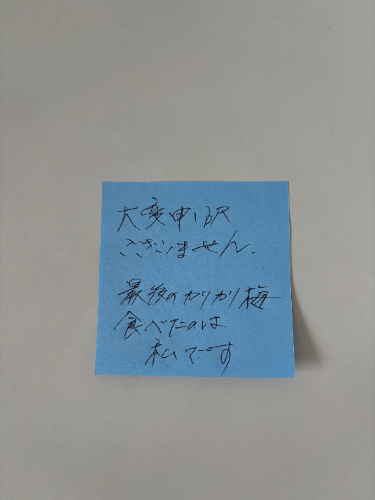 大変申し訳
ございません.
最後のカリカリ梅
食べたのは
私です